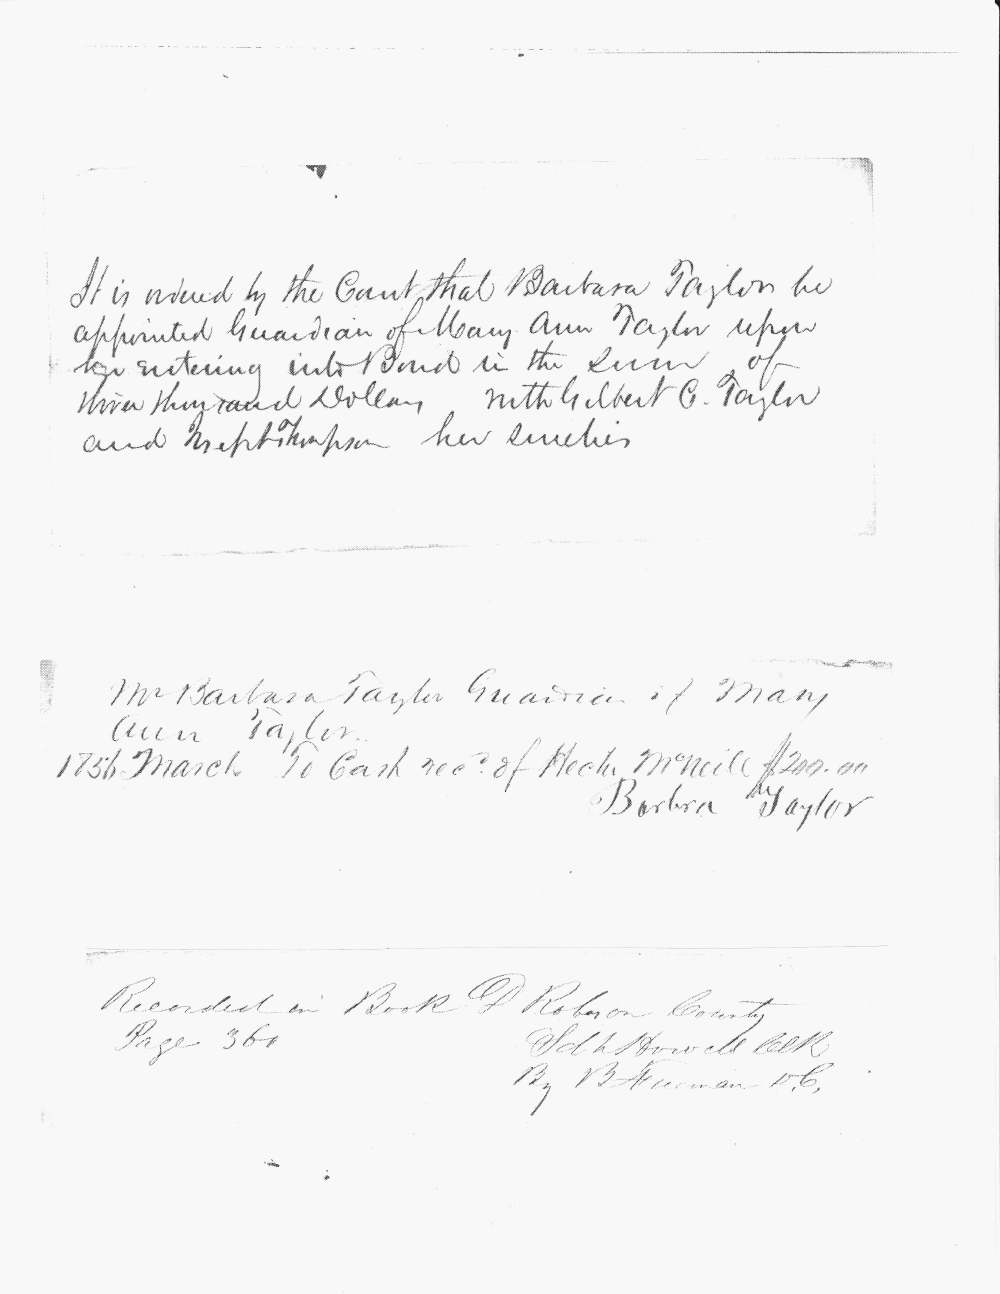 It is ordered by the Court that Barbara Taylor be
appointed Guardian of Mary Ann Taylor upon
her entering into Bond in the sum of
three thousand Dollars with Gilbert C. Taylor
and Thompson her sureties
Mrs Barbara Taylor Guardian of Mary
Ann Taylor
1856 March To Cash recd. of Hector McNeill $200.00
Barbra Taylor
Recorded in Book D Robeson County
Page 360
Howell Clk
By B Freeman D.C.